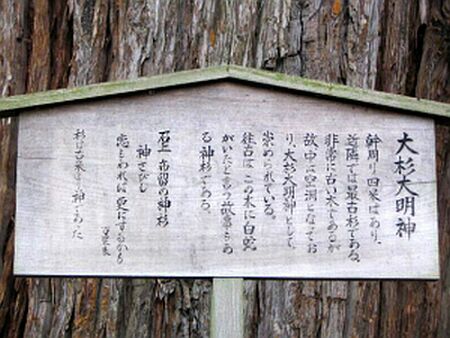 大杉大明神
幹周り四米ばあり、
近隣では最古杉である。
非常に古い木であるが
故中は空洞となってお
り、大杉大明神として、
崇められている。
往古この木に白蛇
がいたと言う故事もあ
る神杉である。
石上布留の神杉
神さびし
恋もわれは更にするかも
万葉集
杉は古来より神であった